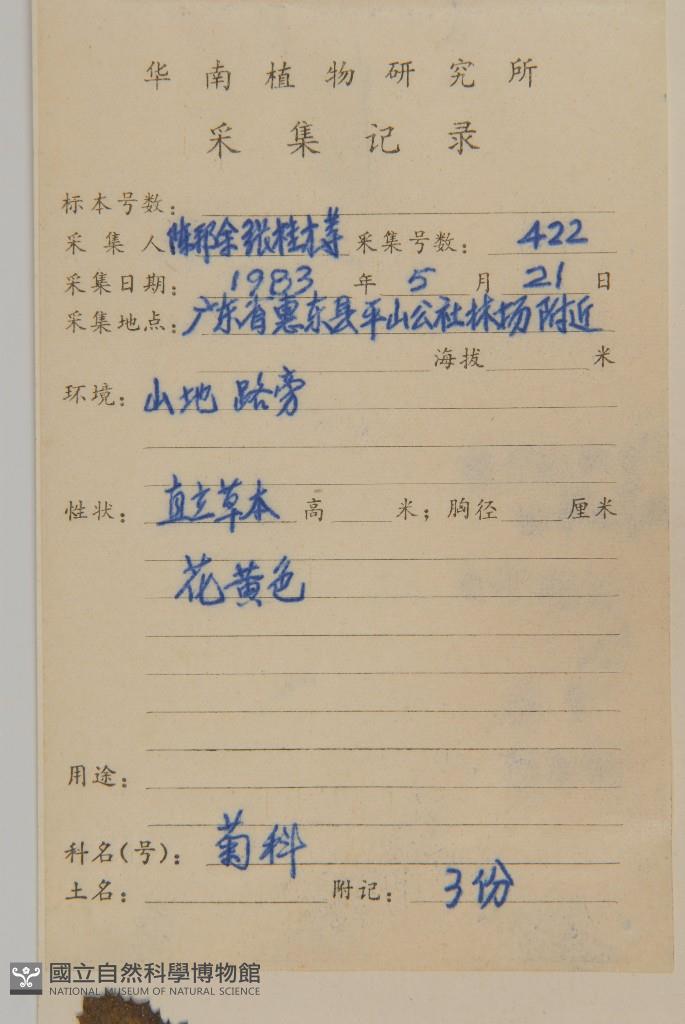 华南植物研究所
采集记录
标本号数:
采集人 陈邦余 张桂才等 采集号数: 422
采集日期: 1983 年 5 月 21 日
采集地点: 广东省惠东县平山公社林场附近
海拔 米
环境: 山地 路旁
性状: 直立草本 高 米; 胸径 厘米
花黄色
用途:
科名(号): 菊科
土名: 附记: 3份
國立自然科學博物館
NATIONAL MUSEUM OF NATURAL SCIENCE